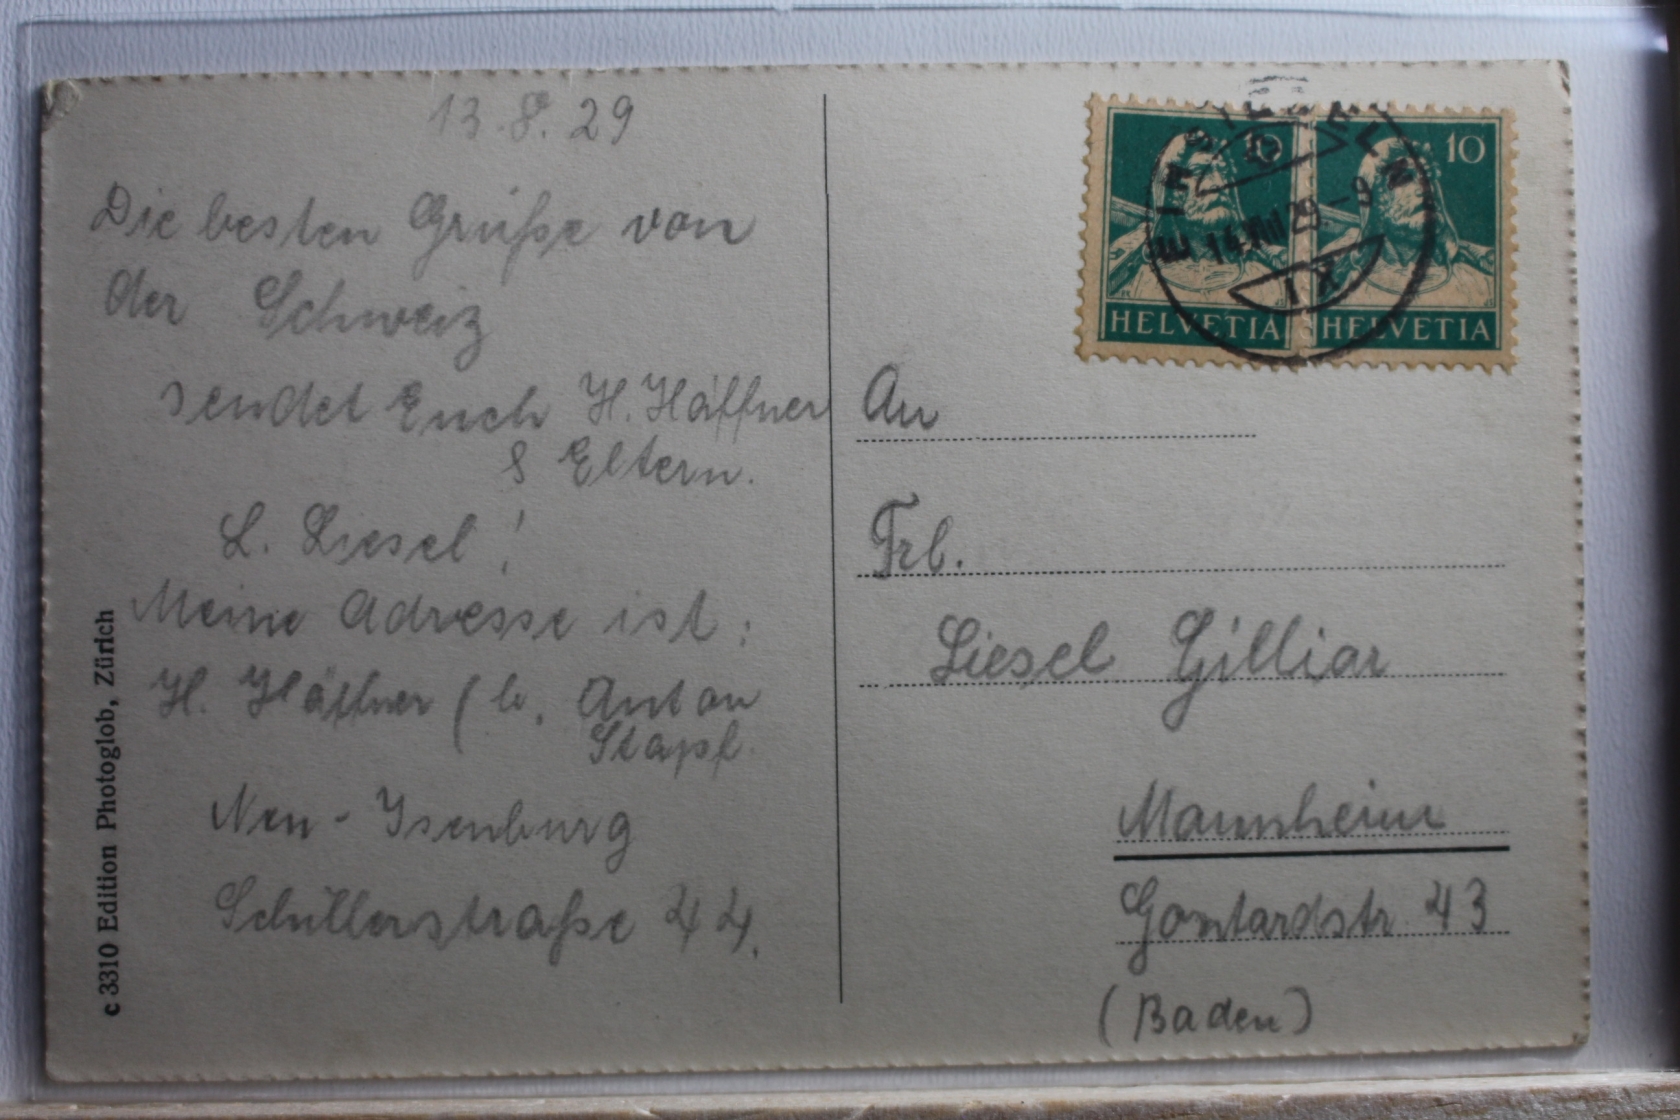 13.8.29
Die besten Grüße von
der Schweiz
sendet Euch H. Häffner
& Eltern.
L. Liesel!
Meine Adresse ist:
H. Häffner (b. Anton
Stapf.
Neu-Isenburg
Schillerstraße 44.
c 3310 Edition Photoglob, Zürich
10
10
HELVETIA
HELVETIA
EINSIEDELN
14.VIII.29-9
An
Frl.
Liesel Gilliar
Mannheim
Gontardstr 43
(Baden)